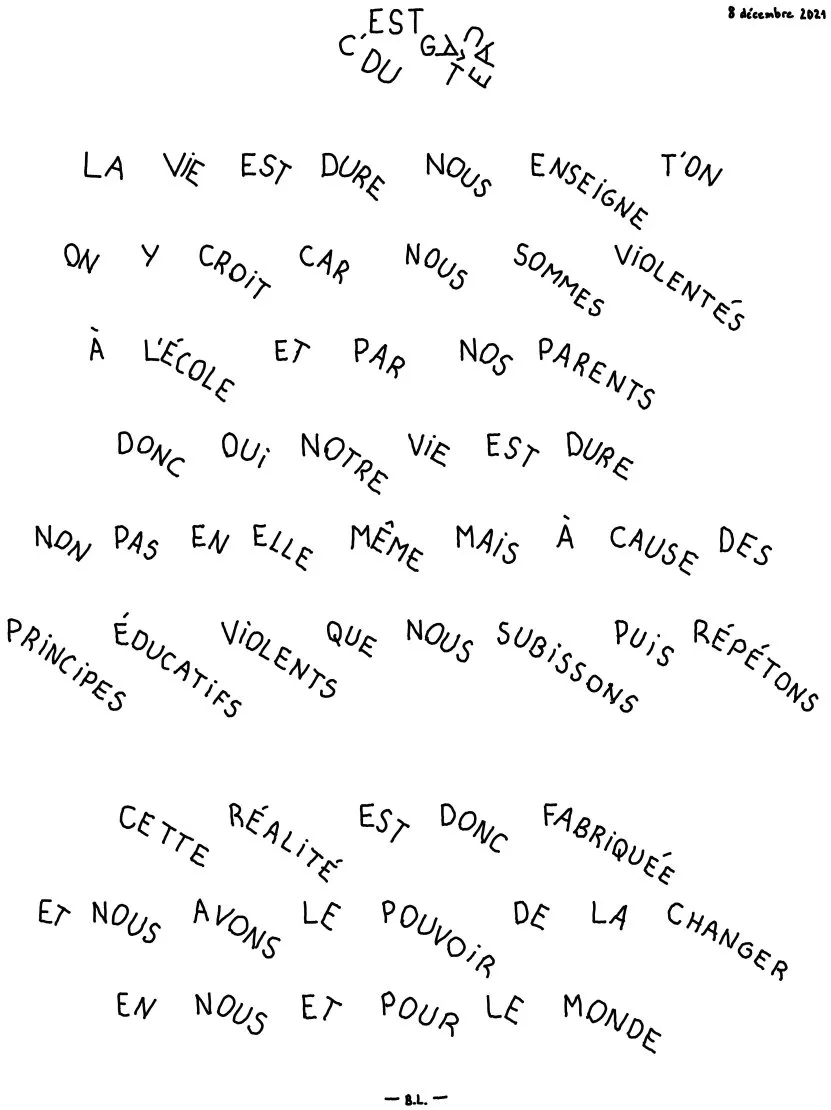 8 décembre 2021
C'EST DU GÂTEAU
LA ViE EST DURE NOUS ENSEiGNE T'ON
ON Y CROiT CAR NOUS SOMMES ViOLENTÉS
À L'ÉCOLE ET PAR NOS PARENTS
DONC OUi NOTRE ViE EST DURE
NON PAS EN ELLE MÊME MAiS À CAUSE DES
PRiNCiPES ÉDUCATiFS ViOLENTS QUE NOUS SUBiSSONS PUiS RÉPÉTONS
CETTE RÉALiTÉ EST DONC FABRiQUÉE
ET NOUS AVONS LE POUVOiR DE LA CHANGER
EN NOUS ET POUR LE MONDE
— B.L. —